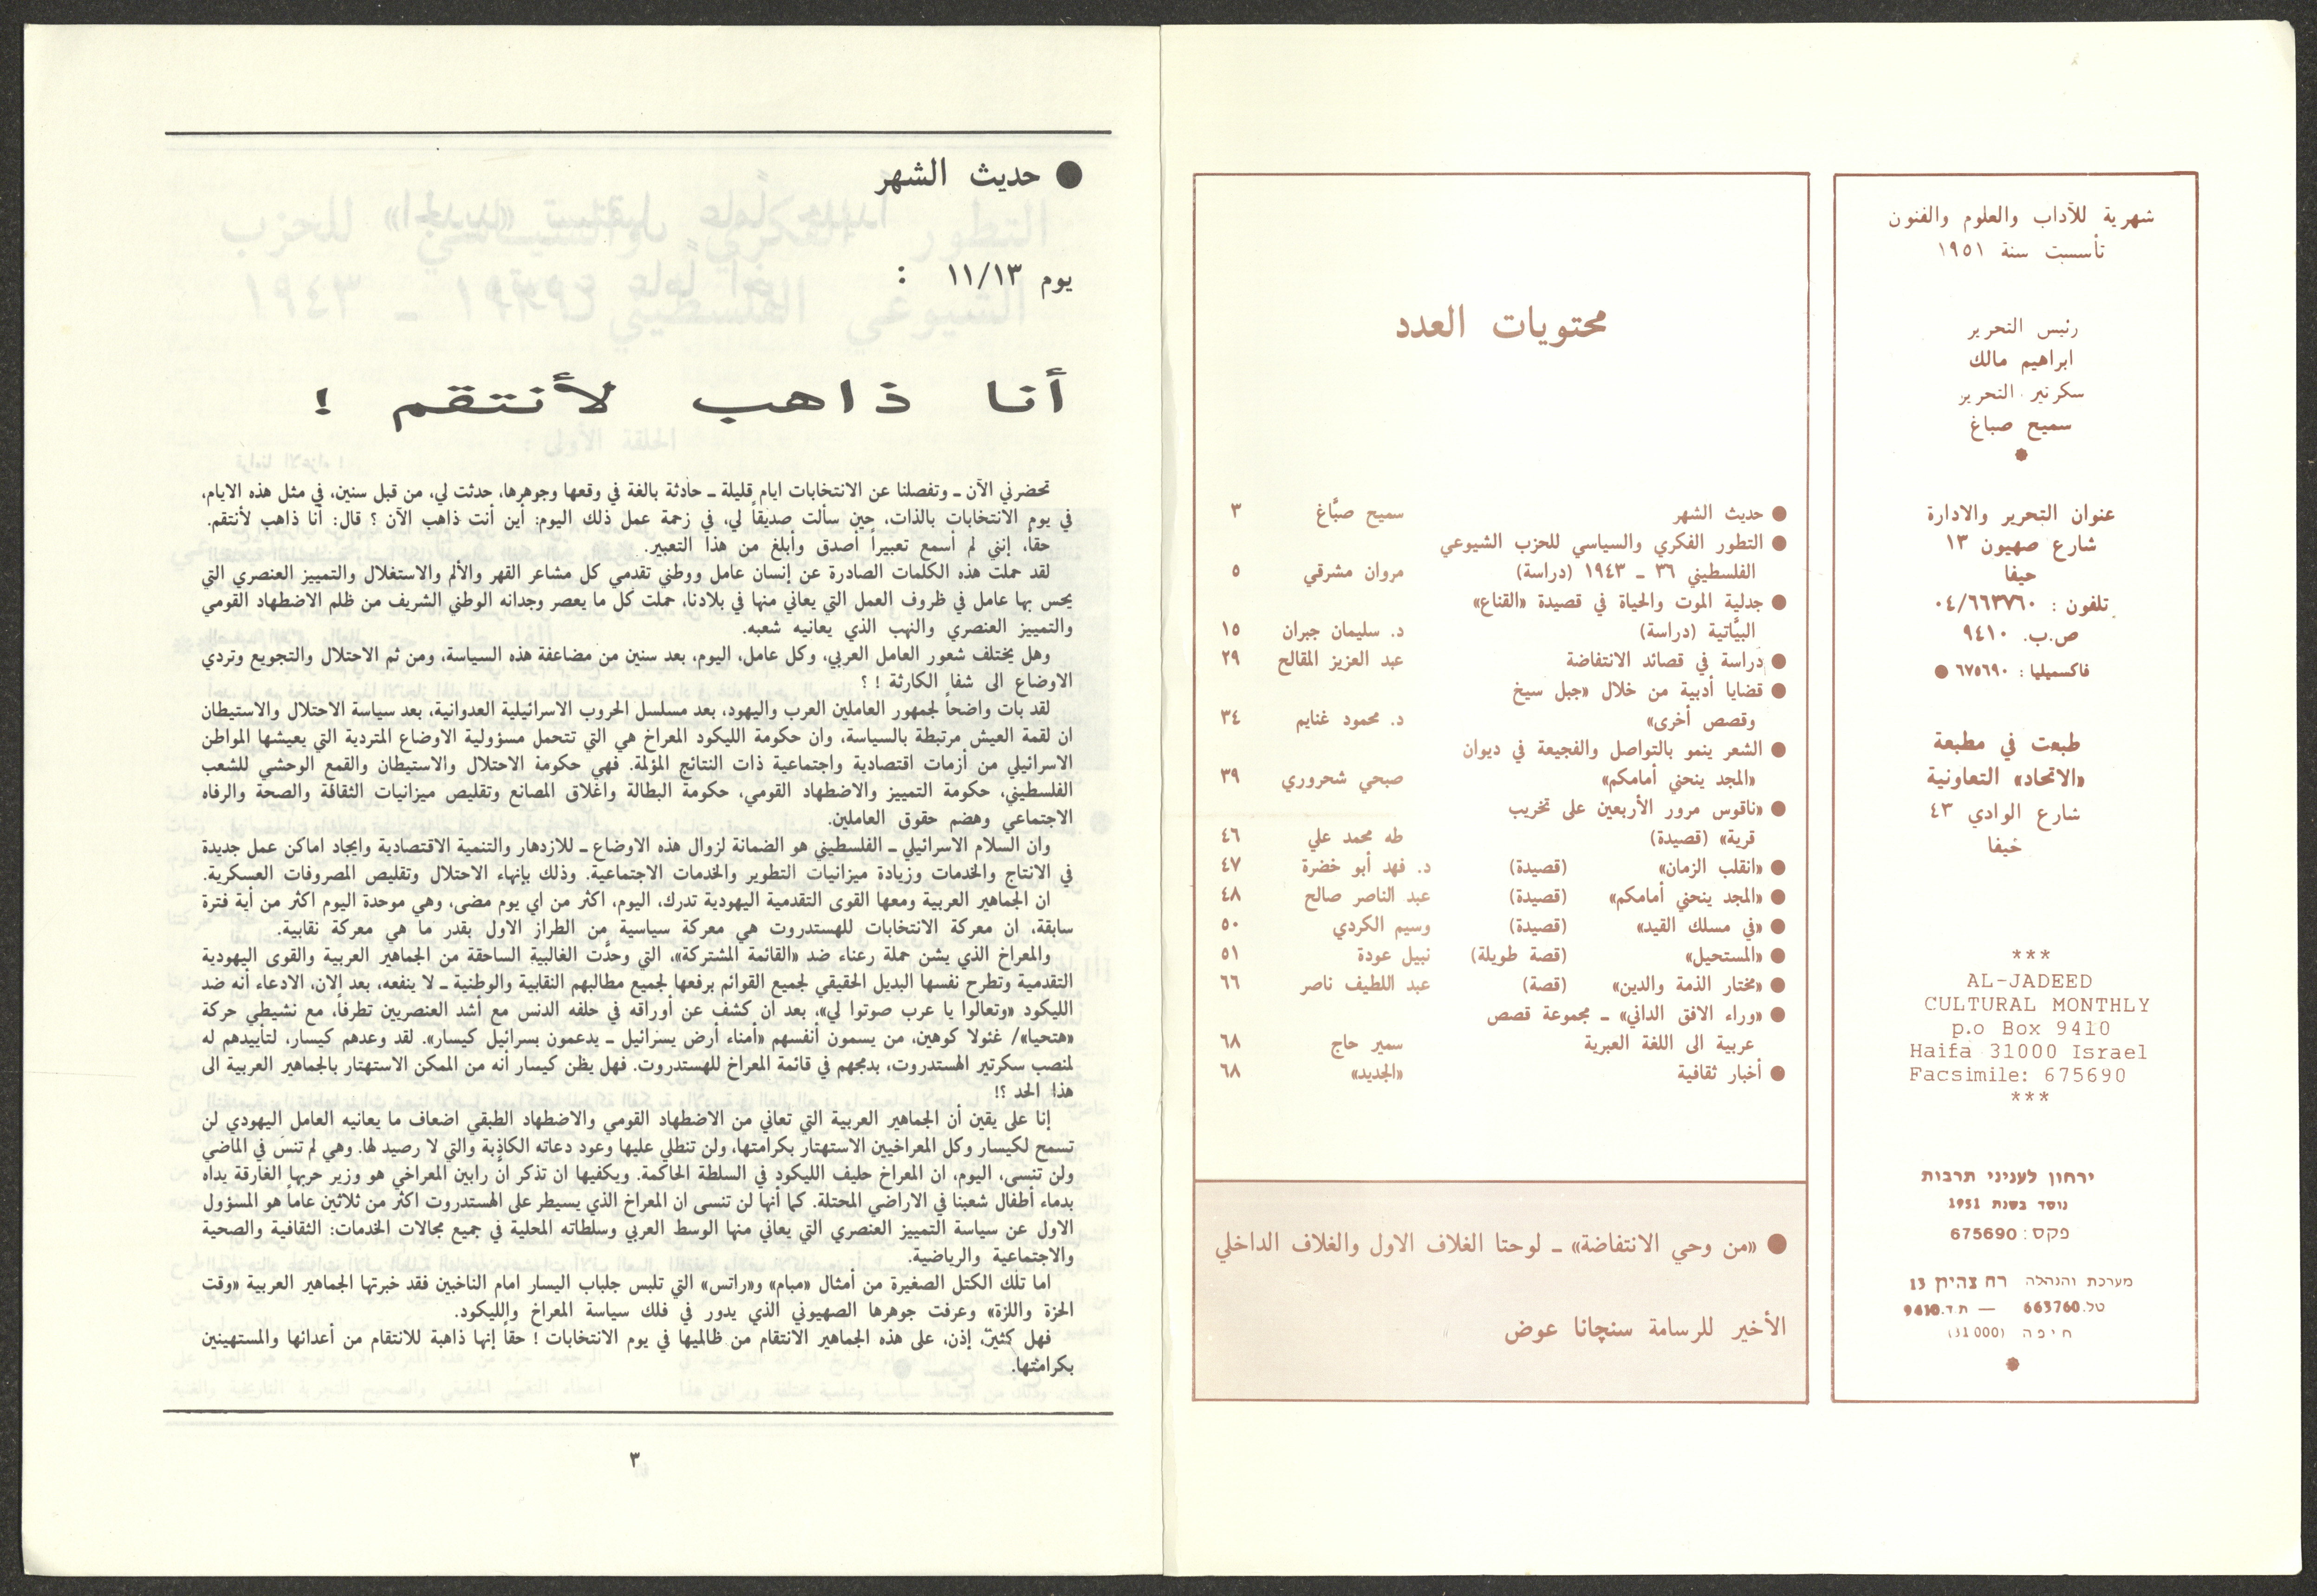 شهرية للآداب والعلوم والفنون
تأسست سنة ١٩٥١
رئيس التحرير
ابراهيم مالك
سكرتير التحرير
سميح صباغ
عنوان التحرير والادارة
شارع صهيون ١٣
حيفا
تلفون : ٠٤/٦٦٣٧٦٠
ص.ب. ٩٤١٠
فاكسميليا : ٦٧٥٦٩٠ ●
طبعت في مطبعة
«الاتحاد» التعاونية
شارع الوادي ٤٣
حيفا
***
AL-JADEED
CULTURAL MONTHLY
p.o Box 9410
Haifa 31000 Israel
Facsimile: 675690
***
ירחון לעניני תרבות
נוסד בשנת 1951
פקס: 675690
מערכת והנהלה רח צהיון 13
טל.663760 — ת.ד.9410
חיפה (31000)
محتويات العدد
● حديث الشهر سميح صبَّاغ ٣
● التطور الفكري والسياسي للحزب الشيوعي
الفلسطيني ٣٦ ـ ١٩٤٣ (دراسة) مروان مشرقي ٥
● جدلية الموت والحياة في قصيدة «القناع»
البيَّاتية (دراسة) د. سليمان جبران ١٥
● دراسة في قصائد الانتفاضة عبد العزيز المقالح ٢٩
● قضايا أدبية من خلال «جبل سيخ
وقصص أخرى» د. محمود غنايم ٣٤
● الشعر ينمو بالتواصل والفجيعة في ديوان
«المجد ينحني أمامكم» صبحي شحروري ٣٩
● «ناقوس مرور الأربعين على تخريب
قرية» (قصيدة) طه محمد علي ٤٦
● «انقلب الزمان» (قصيدة) د. فهد أبو خضرة ٤٧
● «المجد ينحني أمامكم» (قصيدة) عبد الناصر صالح ٤٨
● «في مسلك القيد» (قصيدة) وسيم الكردي ٥٠
● «المستحيل» (قصة طويلة) نبيل عودة ٥١
● «مختار الذمة والدين» (قصة) عبد اللطيف ناصر ٦٦
● «وراء الافق الداني» ـ مجموعة قصص
عربية الى اللغة العبرية سمير حاج ٦٨
● أخبار ثقافية «الجديد» ٦٨
● «من وحي الانتفاضة» ـ لوحتا الغلاف الاول والغلاف الداخلي
الأخير للرسامة سنچانا عوض
● حديث الشهر
يوم ١١/١٣ :
أنا ذاهب لأنتقم !
تحضرني الآن ـ وتفصلنا عن الانتخابات ايام قليلة ـ حادثة بالغة في وقعها وجوهرها، حدثت لي، من قبل سنين، في مثل هذه الايام،
في يوم الانتخابات بالذات، حين سألت صديقاً لي، في زحمة عمل ذلك اليوم: أين أنت ذاهب الآن ؟ قال: أنا ذاهب لأنتقم.
حقاً، إنني لم أسمع تعبيراً أصدق وأبلغ من هذا التعبير.
لقد حملت هذه الكلمات الصادرة عن إنسان عامل ووطني تقدمي كل مشاعر القهر والألم والاستغلال والتمييز العنصري التي
يحس بها عامل في ظروف العمل التي يعاني منها في بلادنا، حملت كل ما يعصر وجدانه الوطني الشريف من ظلم الاضطهاد القومي
والتمييز العنصري والنهب الذي يعانيه شعبه.
وهل يختلف شعور العامل العربي، وكل عامل، اليوم، بعد سنين من مضاعفة هذه السياسة، ومن ثم الاحتلال والتجويع وتردي
الاوضاع الى شفا الكارثة ! ؟
لقد بات واضحاً لجمهور العاملين العرب واليهود، بعد مسلسل الحروب الاسرائيلية العدوانية، بعد سياسة الاحتلال والاستيطان
ان لقمة العيش مرتبطة بالسياسة، وان حكومة الليكود المعراخ هي التي تتحمل مسؤولية الاوضاع المتردية التي يعيشها المواطن
الاسرائيلي من أزمات اقتصادية واجتماعية ذات النتائج المؤلمة. فهي حكومة الاحتلال والاستيطان والقمع الوحشي للشعب
الفلسطيني، حكومة التمييز والاضطهاد القومي، حكومة البطالة واغلاق المصانع وتقليص ميزانيات الثقافة والصحة والرفاه
الاجتماعي وهضم حقوق العاملين.
وان السلام الاسرائيلي ـ الفلسطيني هو الضمانة لزوال هذه الاوضاع ـ للازدهار والتنمية الاقتصادية وايجاد اماكن عمل جديدة
في الانتاج والخدمات وزيادة ميزانيات التطوير والخدمات الاجتماعية. وذلك بإنهاء الاحتلال وتقليص المصروفات العسكرية.
ان الجماهير العربية ومعها القوى التقدمية اليهودية تدرك، اليوم، اكثر من اي يوم مضى، وهي موحدة اليوم اكثر من أية فترة
سابقة، ان معركة الانتخابات للهستدروت هي معركة سياسية من الطراز الاول بقدر ما هي معركة نقابية.
والمعراخ الذي يشن حملة رعناء ضد «القائمة المشتركة»، التي وحدَّت الغالبية الساحقة من الجماهير العربية والقوى اليهودية
التقدمية وتطرح نفسها البديل الحقيقي لجميع القوائم برفعها لجميع مطالبهم النقابية والوطنية ـ لا ينفعه، بعد الان، الادعاء أنه ضد
الليكود «وتعالوا يا عرب صوتوا لي»، بعد ان كشف عن أوراقه في حلفه الدنس مع أشد العنصريين تطرفاً، مع نشيطي حركة
«هتحيا»/ غئولا كوهين، من يسمون أنفسهم «أمناء أرض يسرائيل ـ يدعمون يسرائيل كيسار». لقد وعدهم كيسار، لتأييدهم له
لمنصب سكرتير الهستدروت، بدمجهم في قائمة المعراخ للهستدروت. فهل يظن كيسار أنه من الممكن الاستهتار بالجماهير العربية الى
هذا الحد ؟!
إنا على يقين أن الجماهير العربية التي تعاني من الاضطهاد القومي والاضطهاد الطبقي اضعاف ما يعانيه العامل اليهودي لن
تسمح لكيسار وكل المعراخيين الاستهتار بكرامتها، ولن تنطلي عليها وعود دعاته الكاذبة والتي لا رصيد لها. وهي لم تنسَ في الماضي
ولن تنسى، اليوم، ان المعراخ حليف الليكود في السلطة الحاكمة. ويكفيها ان تذكر انَّ رابين المعراخي هو وزير حربها الغارقة يداه
بدماء أطفال شعبنا في الاراضي المحتلة. كما أنها لن تنسى ان المعراخ الذي يسيطر على الهستدروت اكثر من ثلاثين عاماً هو المسؤول
الاول عن سياسة التمييز العنصري التي يعاني منها الوسط العربي وسلطاته المحلية في جميع مجالات الخدمات: الثقافية والصحية
والاجتماعية والرياضية.
اما تلك الكتل الصغيرة من أمثال «مبام» و«راتس» التي تلبس جلباب اليسار امام الناخبين فقد خبرتها الجماهير العربية «وقت
الحزة واللزة» وعرفت جوهرها الصهيوني الذي يدور في فلك سياسة المعراخ والليكود.
فهل كثيرٌ، إذن، على هذه الجماهير الانتقام من ظالميها في يوم الانتخابات ! حقاً إنها ذاهبة للانتقام من أعدائها والمستهينين
بكرامتها.
٣